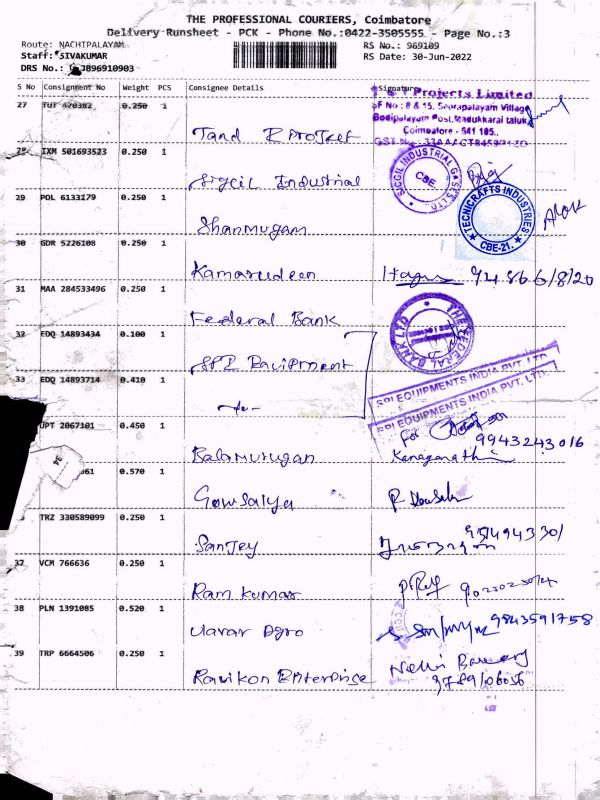 THE PROFESSIONAL COURIERS, Coimbatore
Delivery Runsheet - PCK - Phone No.:0422-3505555 - Page No.:3
Route: NACHIPALAYAM
RS No.: 969109
Staff: SIVAKUMAR
RS Date: 30-Jun-2022
DRS No.: JB96910903
S No Consignment No Weight PCS Consignee Details Signature
27 TUT 420382 0.250 1
T & T Projects Limited
SF No : 8 & 15, Seerapalayam Village
Bodipalayam Post, Madukkarai taluk
Coimbatore - 641 105.
Tand T Project
28 IXM 501693523 0.250 1
SICGIL INDUSTRIAL GASES LTD.
CBE
Sigcil Industrial
29 POL 6133179 0.250 1
TECNICRAFTS INDUSTRIES
CBE-21.
Alok
Shanmugam
30 GDR 5226108 0.250 1
Kamarudeen
31 MAA 284533496 0.250 1
THE FEDERAL BANK LTD
Federal Bank
32 EDQ 14893434 0.100 1
SPI Equipment
SPI EQUIPMENTS INDIA PVT. LTD
33 EDQ 14893714 0.410 1
-do-
SPI EQUIPMENTS INDIA PVT. LTD
34
UPT 2067101 0.450 1
for
9943243016
Balamurugan
0.570 1
Gowsalya
TRZ 330589099 0.250 1
Sanjey
37 VCM 766636 0.250 1
Ram kumar
38 PLN 1391085 0.520 1
9843591758
Uavar Agro
39 TRP 6664506 0.250 1
Ravikon Enterprise